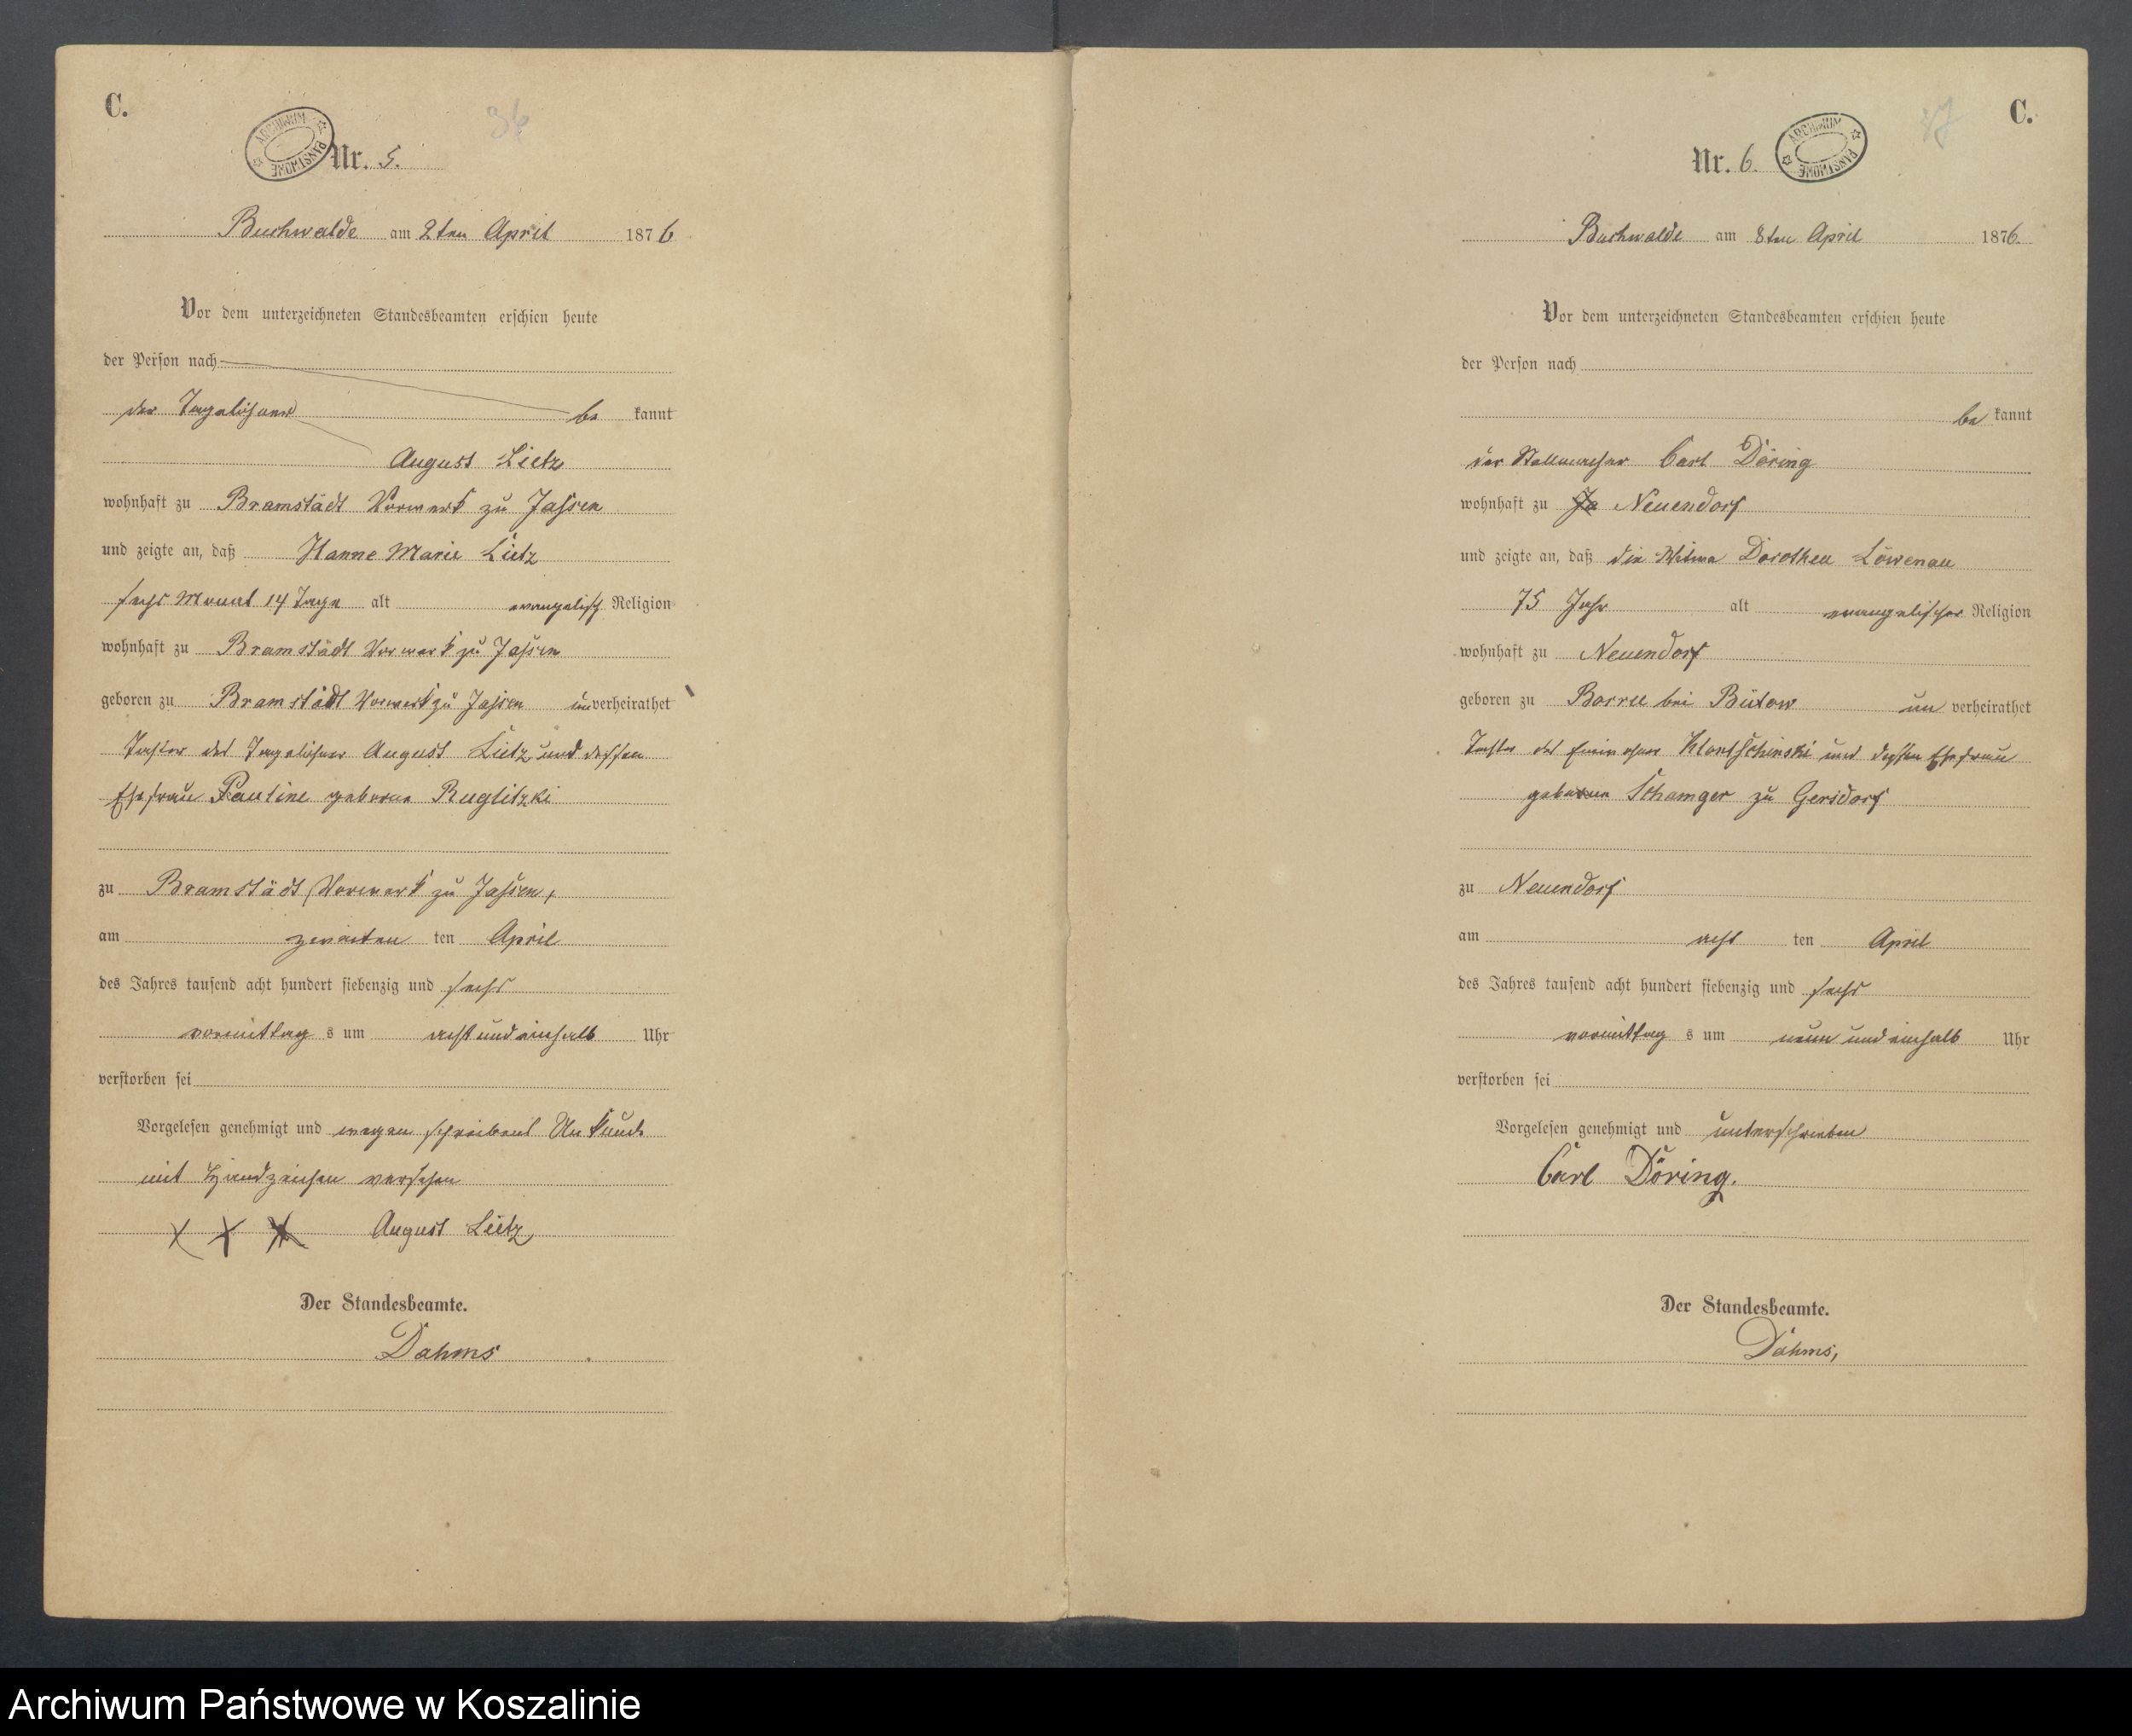 C.
36
ARCHIWUM PAŃSTWOWE
Nr. 5.
Buchwalde am 2ten April 1876
Vor dem unterzeichneten Standesbeamten erschien heute
der Person nach
der Tagelöhner be kannt
August Lietz
wohnhaft zu Bramstädt Vorwerk zu Jassen
und zeigte an, daß Hanne Marie Lietz
sechs Monat 14 Tage alt evangelisch Religion
wohnhaft zu Bramstädt Vorwerk zu Jassen
geboren zu Bramstädt Vorwerk zu Jassen unverheirathet
Tochter des Tagelöhner August Lietz und dessen
Ehefrau Pauline geborne Ruglitzki
zu Bramstädt, Vorwerk zu Jassen,
am zweiten ten April
des Jahres tausend acht hundert siebenzig und sechs
vormittag s um acht und einhalb Uhr
verstorben sei
Vorgelesen genehmigt und wegen schreibens Unkunde
mit Handzeichen versehen
X X X August Lietz
Der Standesbeamte.
Dahms
C.
ARCHIWUM PAŃSTWOWE
Nr. 6.
Buchwalde am 8ten April 1876.
Vor dem unterzeichneten Standesbeamten erschien heute
der Person nach
be kannt
der Stellmacher Carl Döring
wohnhaft zu Ja Neuendorf
und zeigte an, daß die Witwe Dorothea Löwenau
75 Jahr alt evangelischer Religion
wohnhaft zu Neuendorf
geboren zu Borree bei Bütow un verheirathet
Tochter des und dessen Ehefrau
geborene Schamger zu Gersdorf
zu Neuendorf
am acht ten April
des Jahres tausend acht hundert siebenzig und sechs
vormittag s um neun und einhalb Uhr
verstorben sei
Vorgelesen genehmigt und unterschrieben
Carl Döring.
Der Standesbeamte.
Dahms,
Archiwum Państwowe w Koszalinie